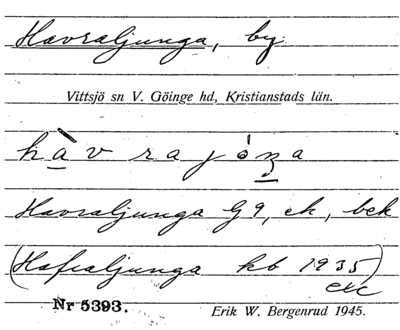 Havraljunga, by
Vittsjö sn V. Göinge hd, Kristianstads län.
hàvrajóŋa
Havraljunga G9, ek, bek
(Hafraljunga kb 1935)
etc
Nr 5393.
Erik W. Bergenrud 1945.